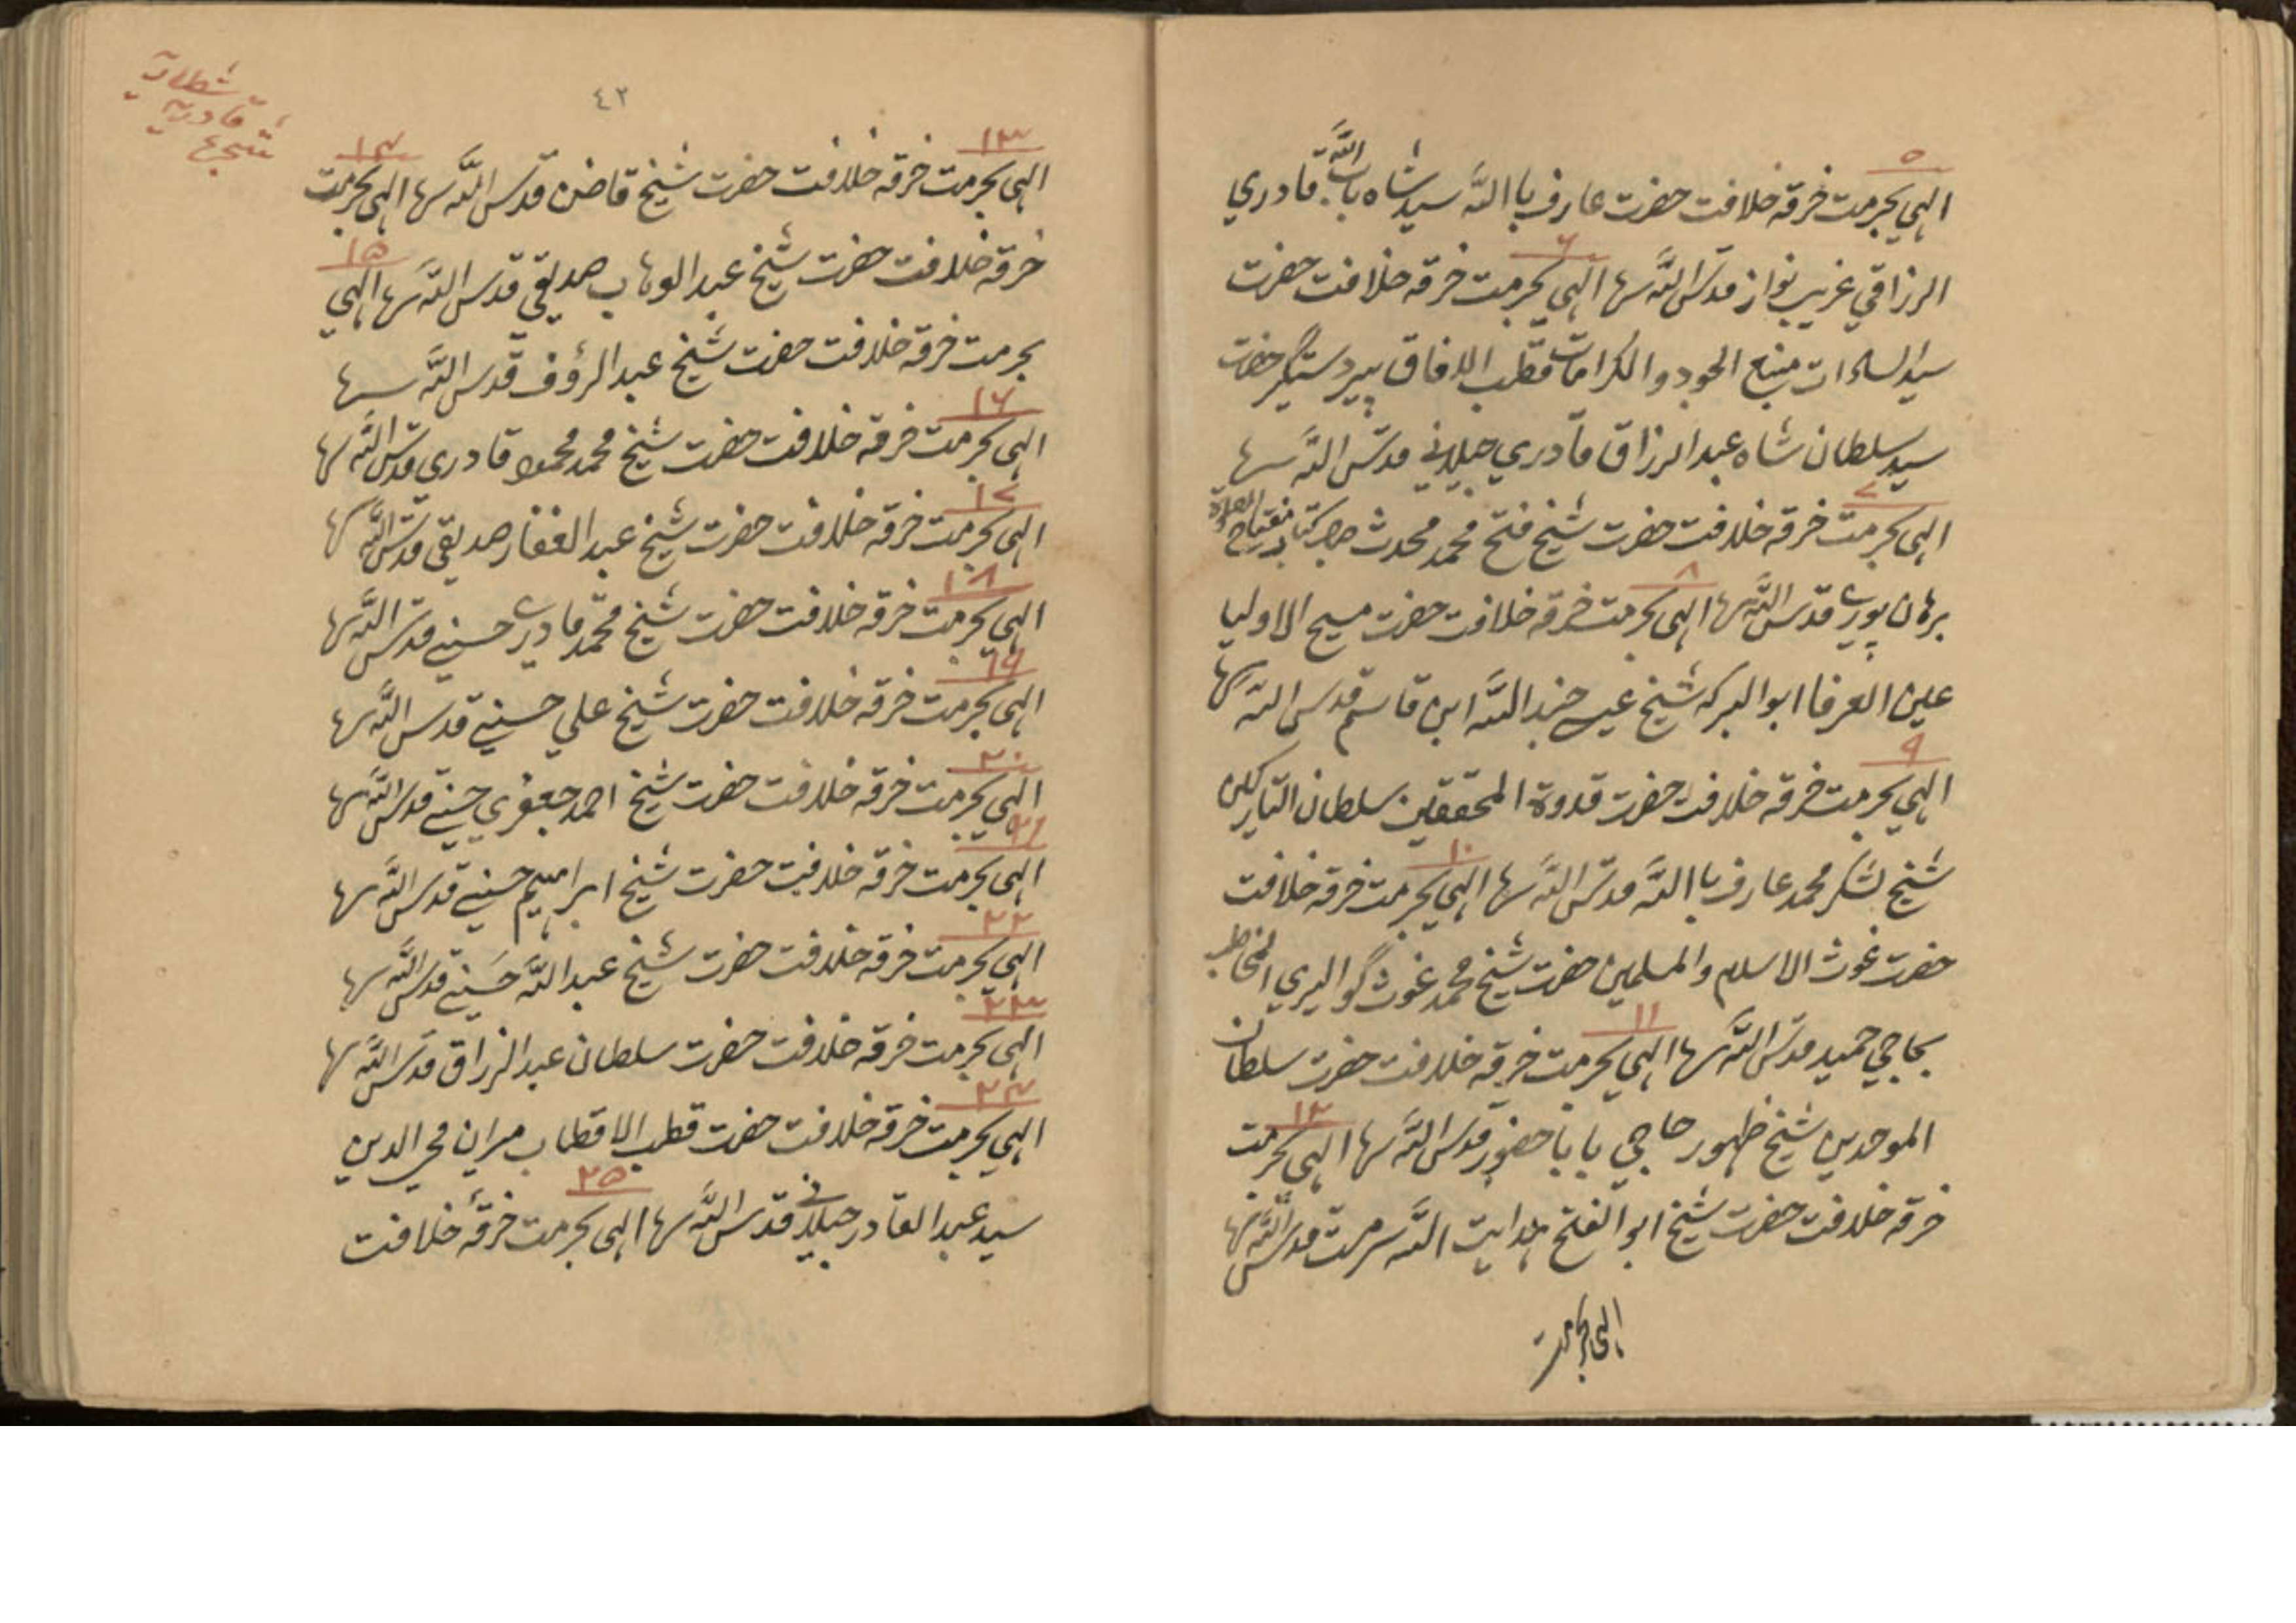 ٥
الهي بحرمت خرقه خلافت حضرت عارف باالله سيد شاه باب الله قادري
٦
الرزاقي غريب نواز قدس الله سرها الهي بحرمت خرقه خلافت حضرت
سيد السادات منبع الجود والكرامات قطب الافاق پير دستگير حضرت
سيد سلطان شاه عبد الرزاق قادري جيلاني قدس الله سرها
٧
الهي بحرمت خرقه خلافت حضرت شيخ فتح محمد محدث صاحب كتاب مفتاح الصلوة
٨
برهان پوري قدس الله سرها الهي بحرمت خرقه خلافت حضرت مسيح الاوليا
عين العرفا ابو البركه شيخ عيسے جند الله ابن قاسم قدس الله سرها
٩
الهي بحرمت خرقه خلافت حضرت قدوة المحققين سلطان التاركين
١٠
شيخ لشكر محمد عارف باالله قدس الله سرها الهي بحرمت خرقه خلافت
حضرت غوث الاسلام والمسلمين حضرت شيخ محمد غوث گواليري المخاطب
١١
بحاجي حميد قدس الله سرها الهي بحرمت خرقه خلافت حضرت سلطان
١٢
الموحدين شيخ ظهور حاجي بابا حضور قدس الله سرها الهي بحرمت
خرقه خلافت حضرت شيخ ابو الفتح هدايت الله سرمت قدس الله سرها
الهي بحرمت
٤٢
شطاريه
قادريه
شجرة
١٣ ١٤
الهي بحرمت خرقه خلافت حضرت شيخ قاضن قدس الله سرها الهي بحرمت
١٥
خرقه خلافت حضرت شيخ عبد الوهاب صديقي قدس الله سرها الهي
بحرمت خرقه خلافت حضرت شيخ عبد الرؤف قدس الله سرها
١٦
الهي بحرمت خرقه خلافت حضرت شيخ محمد محمود قادري قدس الله سرها
١٧
الهي بحرمت خرقه خلافت حضرت شيخ عبد الغفار صديقي قدس الله سرها
١٨
الهي بحرمت خرقه خلافت حضرت شيخ محمد قادري حسيني قدس الله سرها
١٩
الهي بحرمت خرقه خلافت حضرت شيخ علي حسيني قدس الله سرها
٢٠
الهي بحرمت خرقه خلافت حضرت شيخ احمد جعفري حسيني قدس الله سرها
٢١
الهي بحرمت خرقه خلافت حضرت شيخ ابراهيم حسيني قدس الله سرها
٢٢
الهي بحرمت خرقه خلافت حضرت شيخ عبد الله حسني قدس الله سرها
٢٣
الهي بحرمت خرقه خلافت حضرت سلطان عبد الرزاق قدس الله سرها
٢٤
الهي بحرمت خرقه خلافت حضرت قطب الاقطاب ميران محي الدين
٢٥
سيد عبد القادر جيلاني قدس الله سرها الهي بحرمت خرقهٔ خلافت